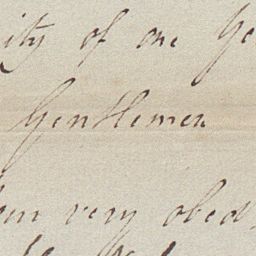 ity of one
Gentlemen
very obed